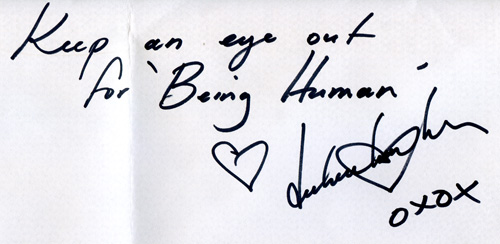 Keep an eye out
for 'Being Human'
oxox